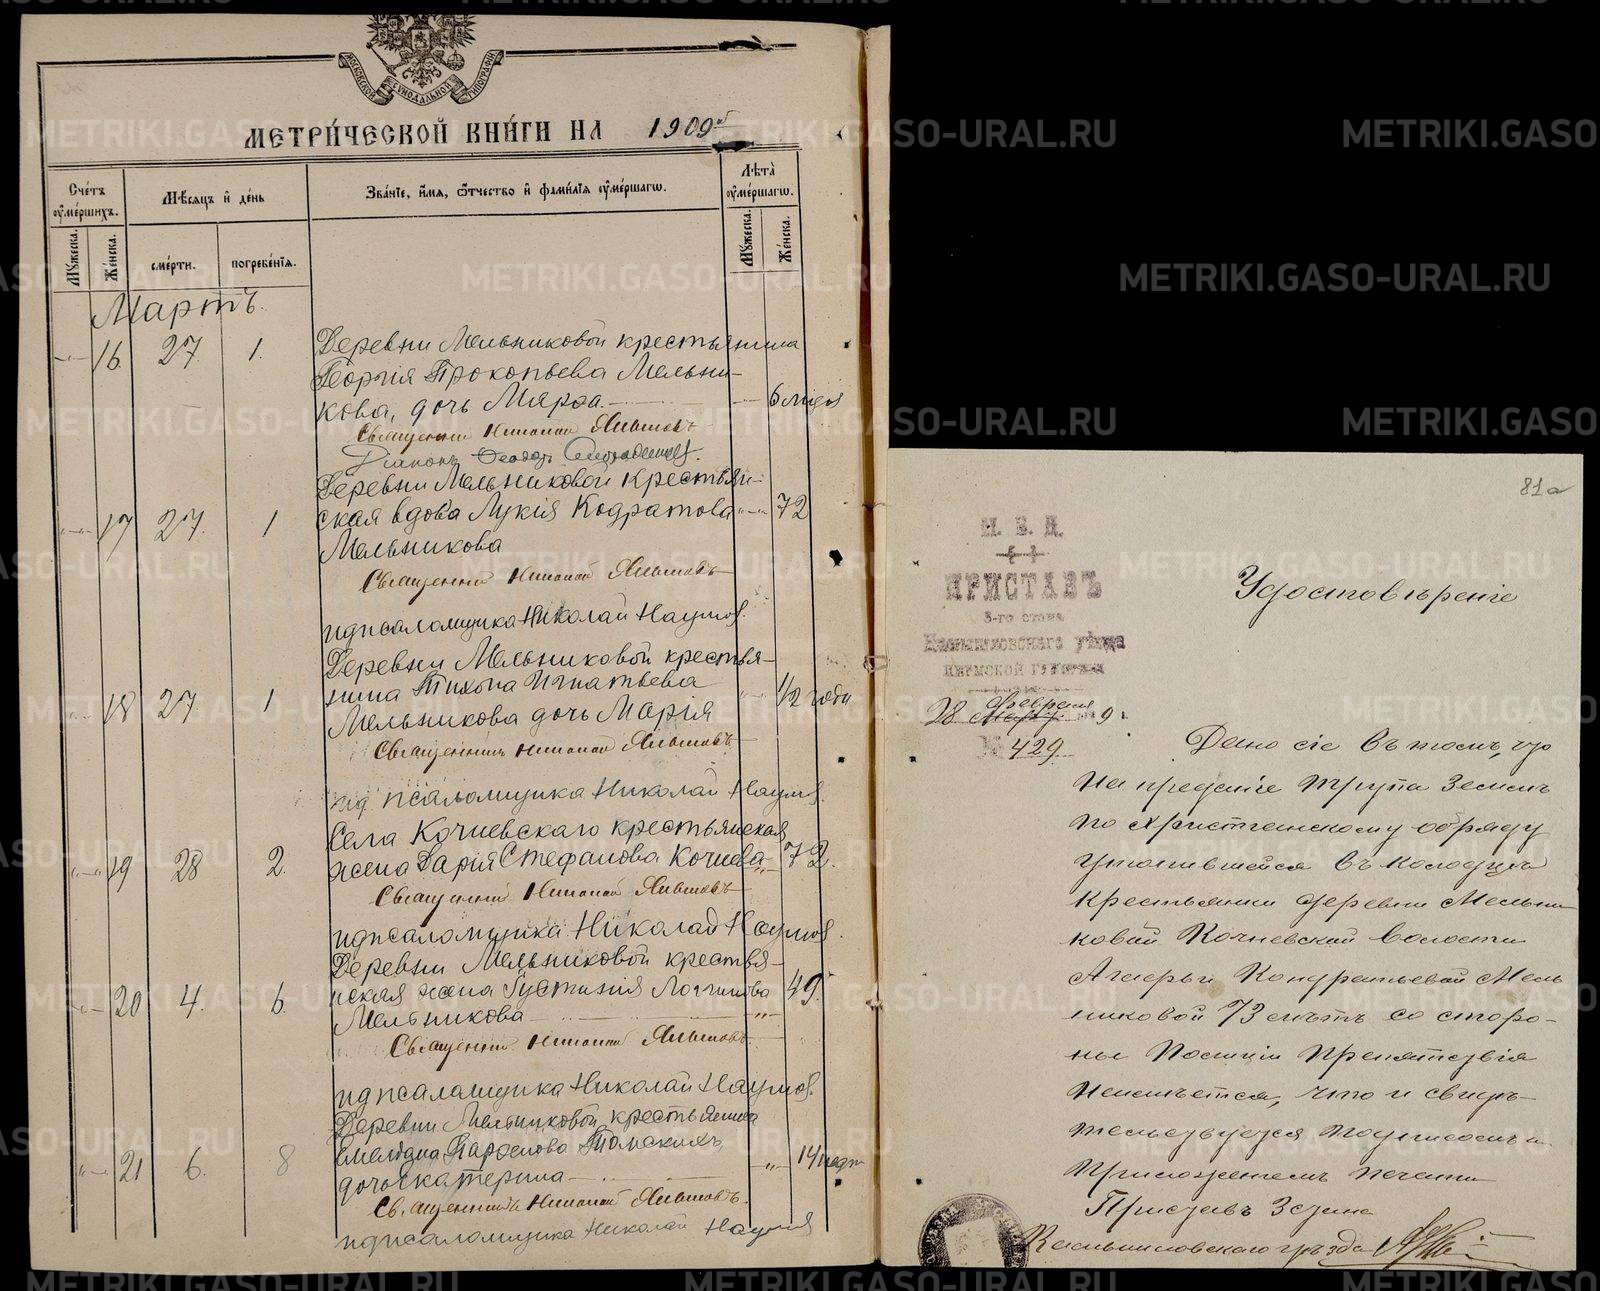 МОСКОВСКОЙ СѴНОДАЛЬНОЙ ТИПОГРАФІИ
МЕТРИ́ЧЕСКОЙ КНИ́ГИ НА 1909
Сче́тъ ᲂу҆ме́ршихъ.
Мꙋ́жеска.
Же́нска.
Мѣ́сѧцъ и҆ де́нь
сме́рти.
погребе́нїѧ.
Зва́нїе, и҆́мѧ, ѻ҆́тчество и҆ фами́лїѧ ᲂу҆ме́ршагѡ.
Лѣ́та̀ ᲂу҆ме́ршагѡ.
Мꙋ́жеска.
Же́нска.
Мартъ.
16 27. 1. Деревни Мельниковой крестьянина
Георгія Прокопьева Мельни-
кова, дочь Марѳа. 6 мѣс
Священникъ Николай
Діаконъ Ѳеодоръ
Деревни Мельниковой крестьян-
17 27. 1 ская вдова Лукія Кодратова 72
Мельникова
Священникъ Николай
и д псаломщика Николай Наумов.
Деревни Мельниковой крестья-
18 27. 1 нина Тихона Игнатьева 1/2 года
Мельникова дочь Марія
Священникъ Николай
и д псаломщика Николай Наумов.
Села Кочневскаго крестьянская
19 28 2. жена Дарія Стефанова Кочнева 72.
Священникъ Николай
и д псаломщика Николай Наумов.
Деревни Мельниковой крестья-
20 4. 6. нская жена Іустинія Логинова 49.
Мельникова
Священникъ Николай
и д псаломщика Николай Наумов.
Деревни Мельниковой крестьянина
21 6. 8 Парѳенова 14 недѣл
дочь Екатерина
Священникъ Николай
и д псаломщика Николай Наумов
81а
М. В. Д.
ПРИСТАВЪ
3-го стана
Камышловскаго уѣзда
ПЕРМСКОЙ ГУБЕРНІИ
февраля
28 Марта 1909 г.
№ 429
Удостовѣреніе
Дано сіе въ томъ, что
на преданіе трупа землѣ
по христіанскому обряду
утопившейся въ колодцѣ
крестьянки деревни Мельни
ковой Кочневской волости
Кондратьевой Мель
никовой 73 лѣтъ со сторо-
ны Полиціи препятствія
неимѣется, что и свидѣ-
тельствуется подписомъ и
приложеніемъ печати
Приставъ 3 стана
Камышловскаго уѣзда